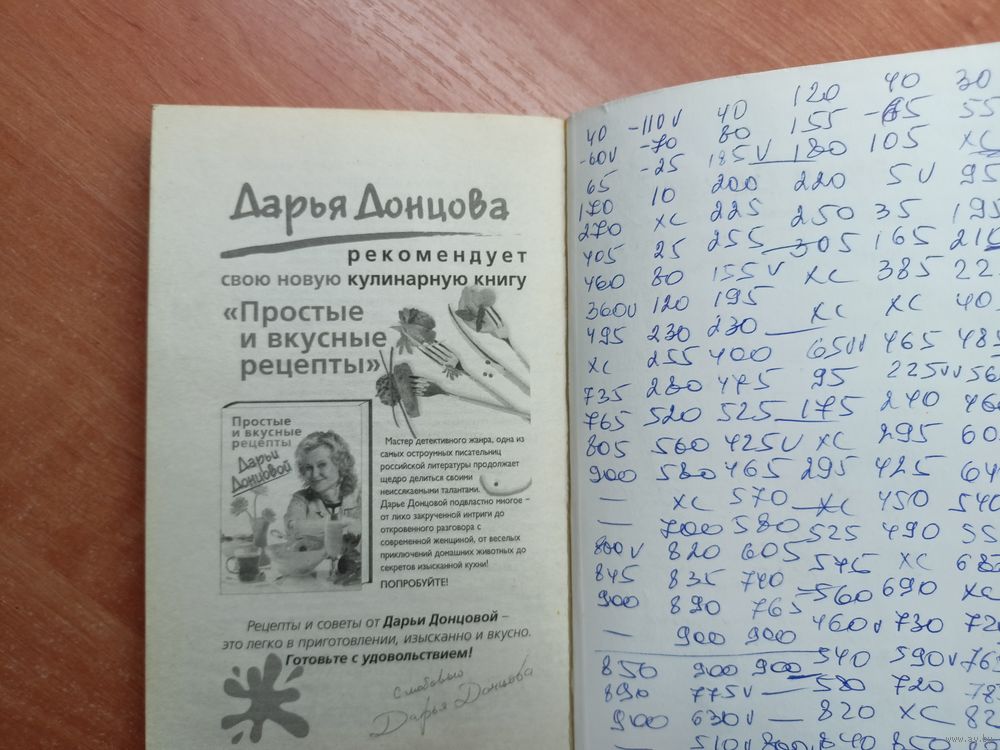 Дарья Донцова
рекомендует
свою новую кулинарную книгу
«Простые
и вкусные
рецепты»
Простые
и вкусные
рецепты
Дарьи
Донцовой
Мастер детективного жанра, одна из
самых остроумных писательниц
российской литературы продолжает
щедро делиться своими
неиссякаемыми талантами.
Дарье Донцовой подвластно многое -
от лихо закрученной интриги до
откровенного разговора с
современной женщиной, от веселых
приключений домашних животных до
секретов изысканной кухни!
ПОПРОБУЙТЕ!
Рецепты и советы от Дарьи Донцовой –
это легко в приготовлении, изысканно и вкусно.
Готовьте с удовольствием!
С любовью
Дарья Донцова
40 -110V 40 120 40 30
-60V -70 80 155 55
65 -25 185V 180 105 XC
170 10 200 220 5V 95
270 XC 225 250 35 195
405 25 255 305 165
460 80 155V XC 385
360V 120 195 XC XC 40
495 230 230 65VV 465
XC 255 400 95 225VV
735 280 475 175 240
765 520 525 XC 295
805 560 425V 295 425
900 580 465 XC 450
— XC 570 525 490
— 700 580 545 XC
800V 820 605 560 690 XC
845 835 740 460V 730
900 890 765 540 590V
— 900 900 580 720
850 900 900 820 XC
890 775V — 840 850
900 630V —
510V 800V